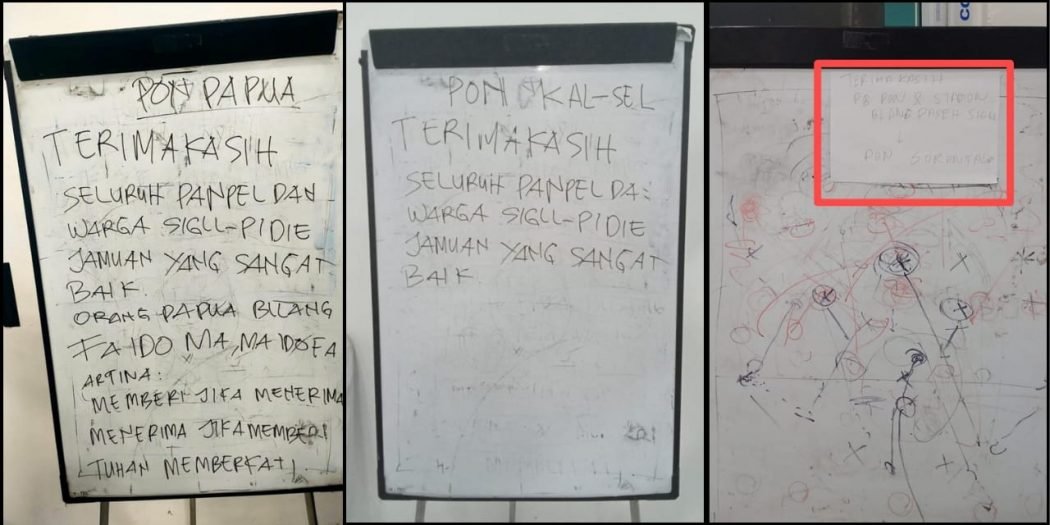 PON PAPUA
TERIMAKASIH
SELURUH PANPEL DAN
WARGA SIGLI-PIDIE
JAMUAN YANG SANGAT
BAIK.
ORANG PAPUA BILANG
FAIDO MA, MA IDOFA
ARTINA:
MEMBERI JIKA MENERIMA
MENERIMA JIKA MEMBERI
TUHAN MEMBERKATI
PON KAL-SEL
TERIMAKASIH
SELURUH PANPEL DA
WARGA SIGLI-PIDIE
JAMUAN YANG SANGAT
BAIK.
TERIMAKASIH
PB PON & STADION
BLANG PASEH SIGLI
PON GORONTALO
CO